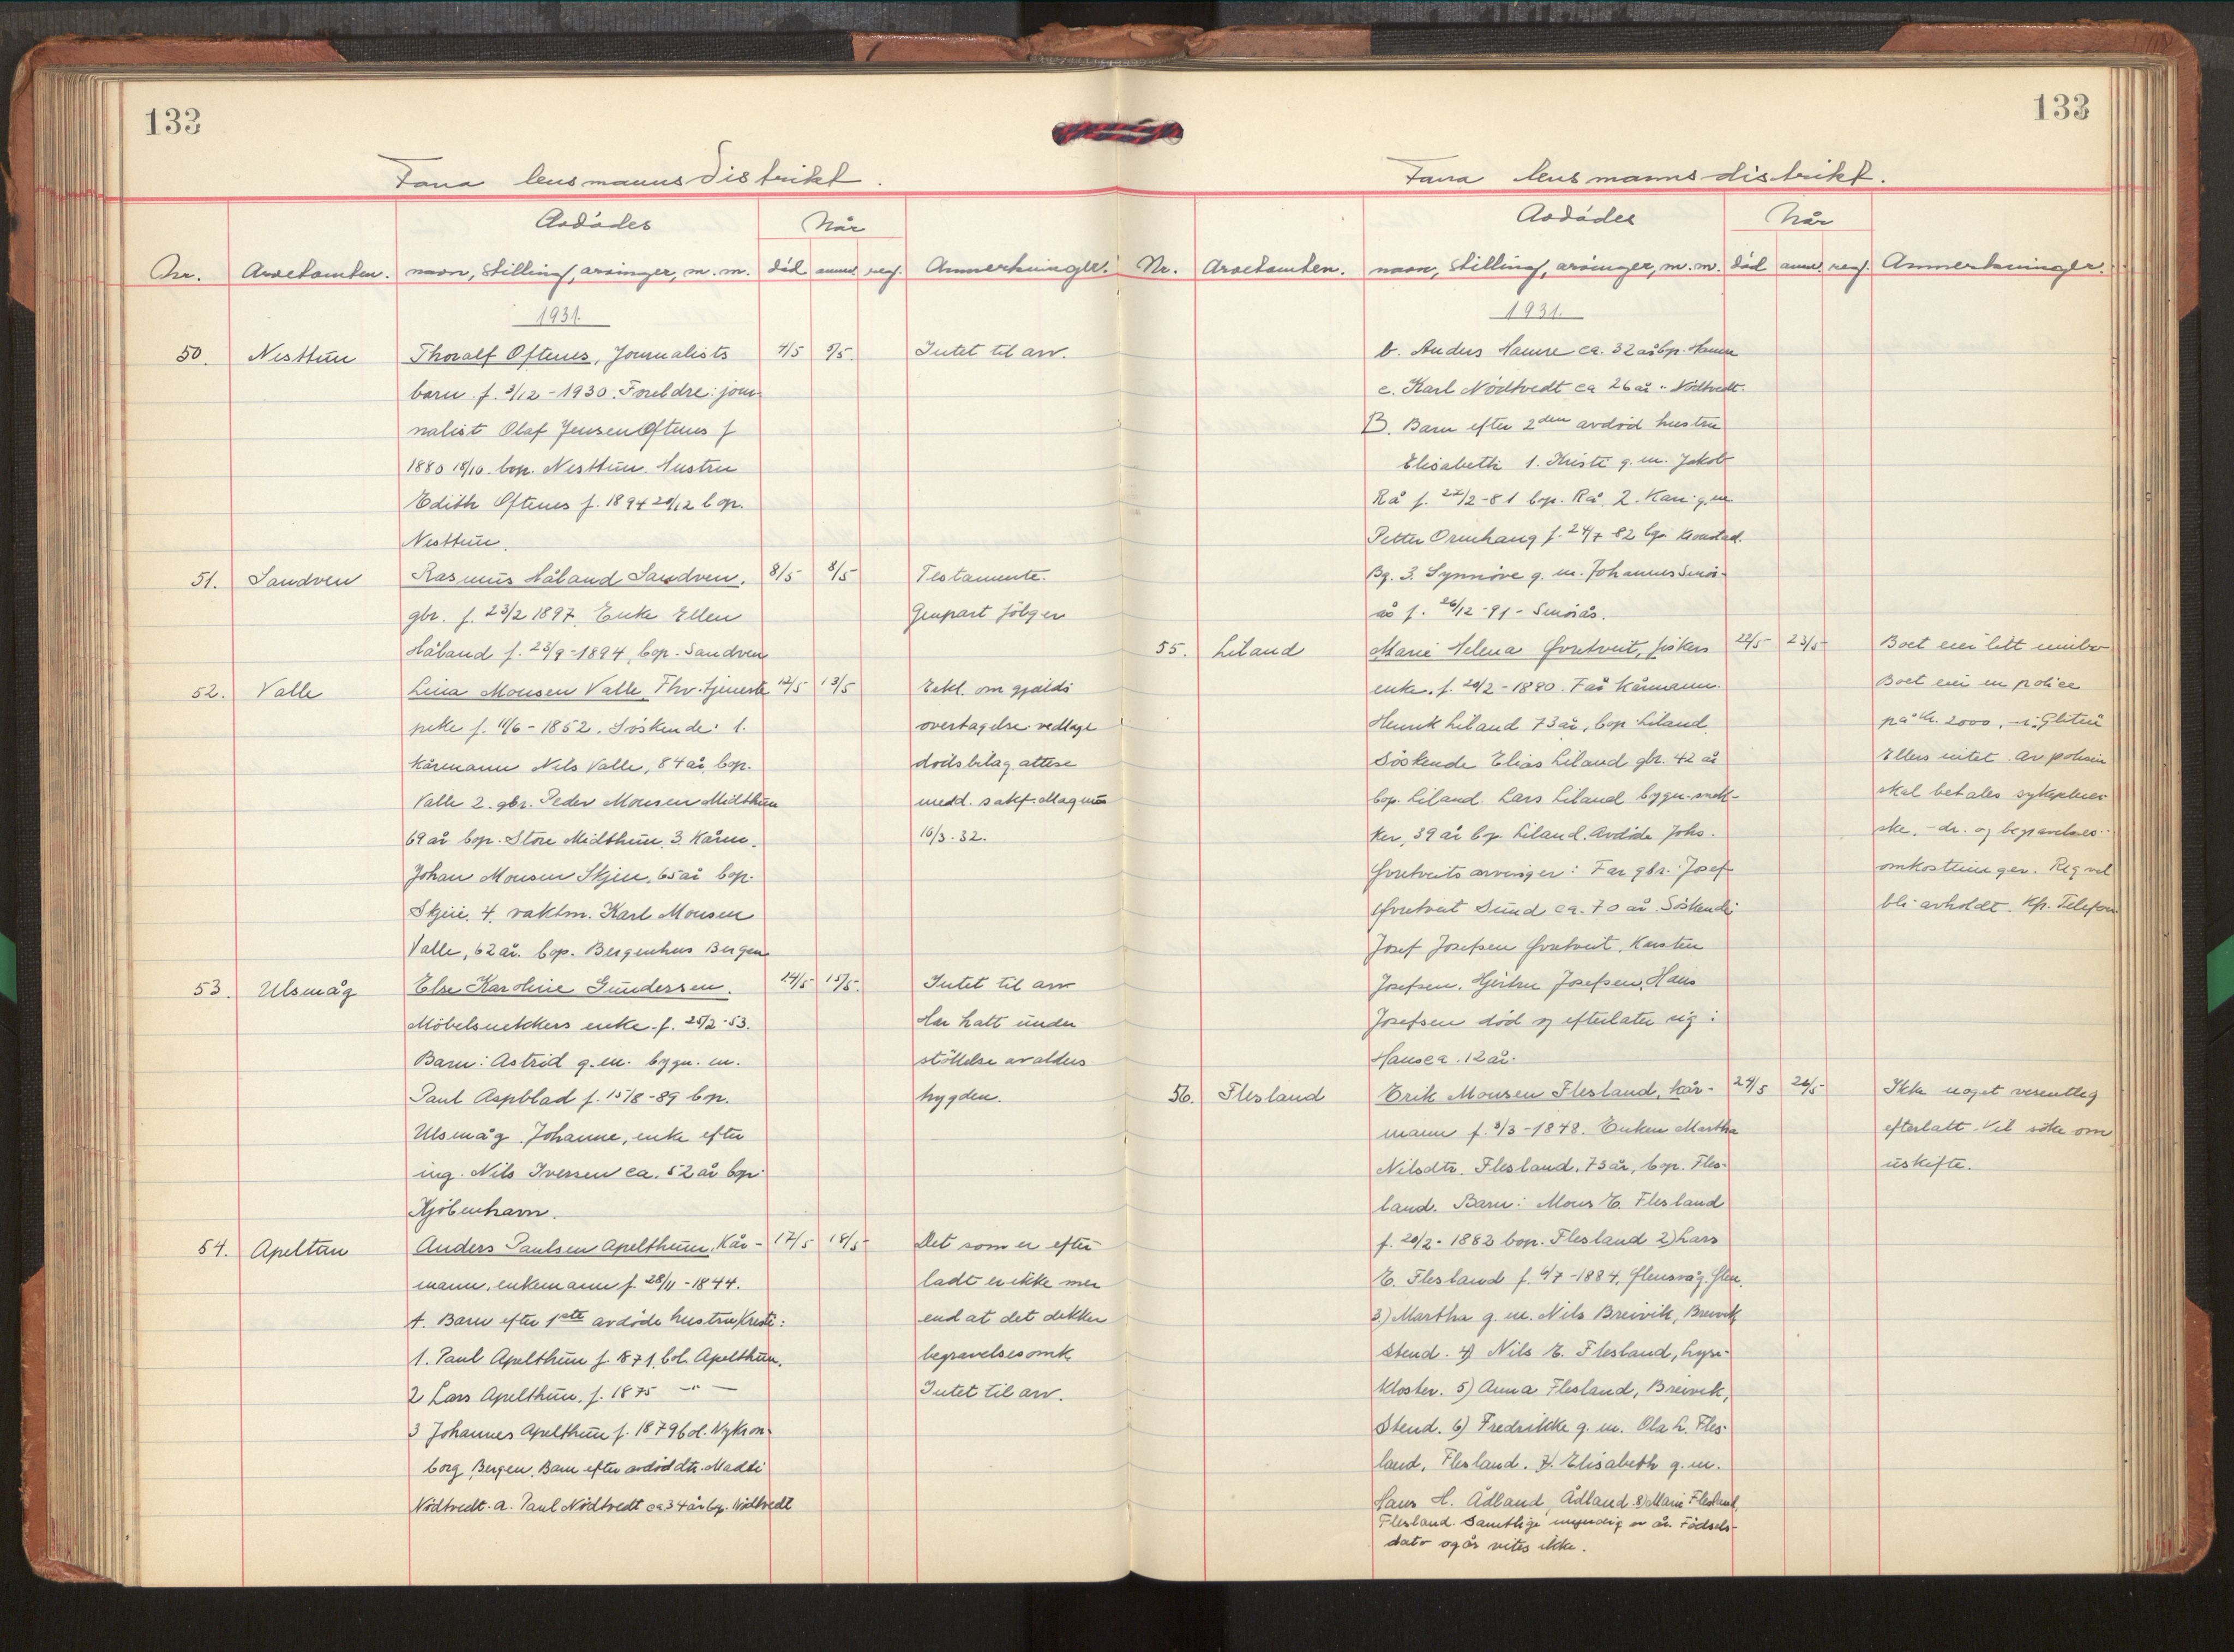 133
Fana lensmannsdistrikt.
Avdödes
Når
Nr. Arvetomten. navn, stilling, arvinger, m. m. död anm. reg. Anmerkninger.
1931.
50. Nesttun Thoralf Oftenes, Journalists 4/5 5/5. Intet til arv.
barn f. 3/12 - 1930. Foreldre: jour-
nalist Olaf Jensen Oftenes f
1880 18/10. bop. Nesttun. Hustru
Edith Oftenes f. 1894 29/12 bop.
Nesttun.
51. Sandven Rasmus Håland Sandven, 8/5 8/5 Testamente.
gbr. f. 23/2 1897. Enke Ellen Genpart fölger
Håland f. 23/9 - 1894, bop. Sandven
52. Valle Lina Monsen Valle, Fhv. tjeneste 12/5 13/5 Erkl. om gjelds
peke f. 11/6 - 1852. Söskende: 1. overtagelse vedlagt
Kårmann Nils Valle, 84 år, bop. dödsbilag
Valle 2. gbr. Peder Monsen Midttun medd. sakf. Magnus
69 år bop. Store Midtthun, 3. Kårm. 16/3. 32.
Johan Monsen Skjie, 65 år bop.
Skjie. 4. vaktm. Karl Monsen
Valle, 62 år. bop. Bergenhus Bergen
53. Ulsmåg Else Karoline Gundersen. 14/5 15/5. Intet til arv
Möbelsnekkers enke. f. 25/2 - 53. Har hatt under
Barn: Astrid g. m. bygn. m. stöttelse av alders
Paul Aspblad f. 15/8 - 89 bop. trygden.
Ulsmåg. Johanne, enke efter
ing. Nils Iversen ca. 52 år bop.
Kjöbenhavn.
54. Apeltun Anders Paulsen Apelthun, Kår- 17/5 18/5 Det som er efter
mann, enkemann f. 28/11 - 1844. ladt er ikke mer
A. Barn efter 1ste avdöde hustru Kristi: end at det dekker
1. Paul Apelthun f. 1871, bol. Apelthun. begravelsesomk.
2 Lars Apelthun. f. 1875 -"- Intet til arv.
3 Johannes Apelthun f. 1879 bol. Nykron-
borg Bergen. Barn efter avdöd dtr. Madli
Nödtvedt. a. Paul Nödtvedt ca 34 år bp. Nödtvedt
133
Fana lensmannsdistrikt.
Avdödes
Når
Nr. Arvetomten. navn, stilling, arvinger, m. m. död anm. reg. Anmerkninger.
1931.
b. Anders Hamre ca. 32 år bp. Hamre
c. Karl Nödtvedt ca 26 år " Nödtvedt.
B. Barn efter 2den avdöd hustru
Elisabeth 1. Kristi g. m. Jakob
Rå f. 27/2 - 81 bop. Rå. 2. Kari g. m
Petter Ormhaug f. 24/7 82 bp. Kronstad.
Bg. 3. Synnöve g. m. Johannes Smörs-
ås f. 26/12 - 91 - Smörås.
55. Liland Marie Helena Grutveit, fiskers 22/5 23/5 Boet eier litt innbo
enke, f. 20/2 - 1890. Far Kårmann. Boet eier en police
Henrik Liland 73 år, bop. Liland. på kr. 2000, - i Gliti
Söskende Elias Liland gbr. 42 år Ellers intet. Av polisen
bop. Liland. Lars Liland bygn. snek- skal betales sykeplei
ker, 39 år bp. Liland. Avdöde Johs. ske, - dr. og begravelses-
arvinger: Far gbr. Josef omkostninger. Reg vil
Sund ca. 70 år. Söskende: bli avholdt. Kfr. Telefon
Josef Josefsen Karsten
Josefsen. Hjertru Josefsen, Hans
Josefsen död og efterlater sig:
Hans ca. 12 år.
56. Flesland Erik Monsen Flesland, kår- 24/5 26/5 Ikke noget vesentleg
mann f. 3/3 - 1848. Enken Martha efterlatt. Vil söke om
Nilsdtr. Flesland, 73 år, bop. Fles- uskifte.
land. Barn: Mons E. Flesland
f. 20/2 - 1883 bop. Flesland 2) Lars
E. Flesland f. 4/7 - 1884, Glensvåg. Glen.
3) Martha g. m. Nils Breivik, Breivik
Stend. 4) Nils E. Flesland, Lyse-
kloster. 5) Anna Flesland, Breivik,
Stend. 6) Fredrikke g. m. Ola L. Fles-
land, Flesland. 7). Elisabeth g. m.
Hans H. Ådland Ådland 8) Marie Flesland,
Flesland. Samtlige myndig er år. Födsels-
dato og år vites ikke.